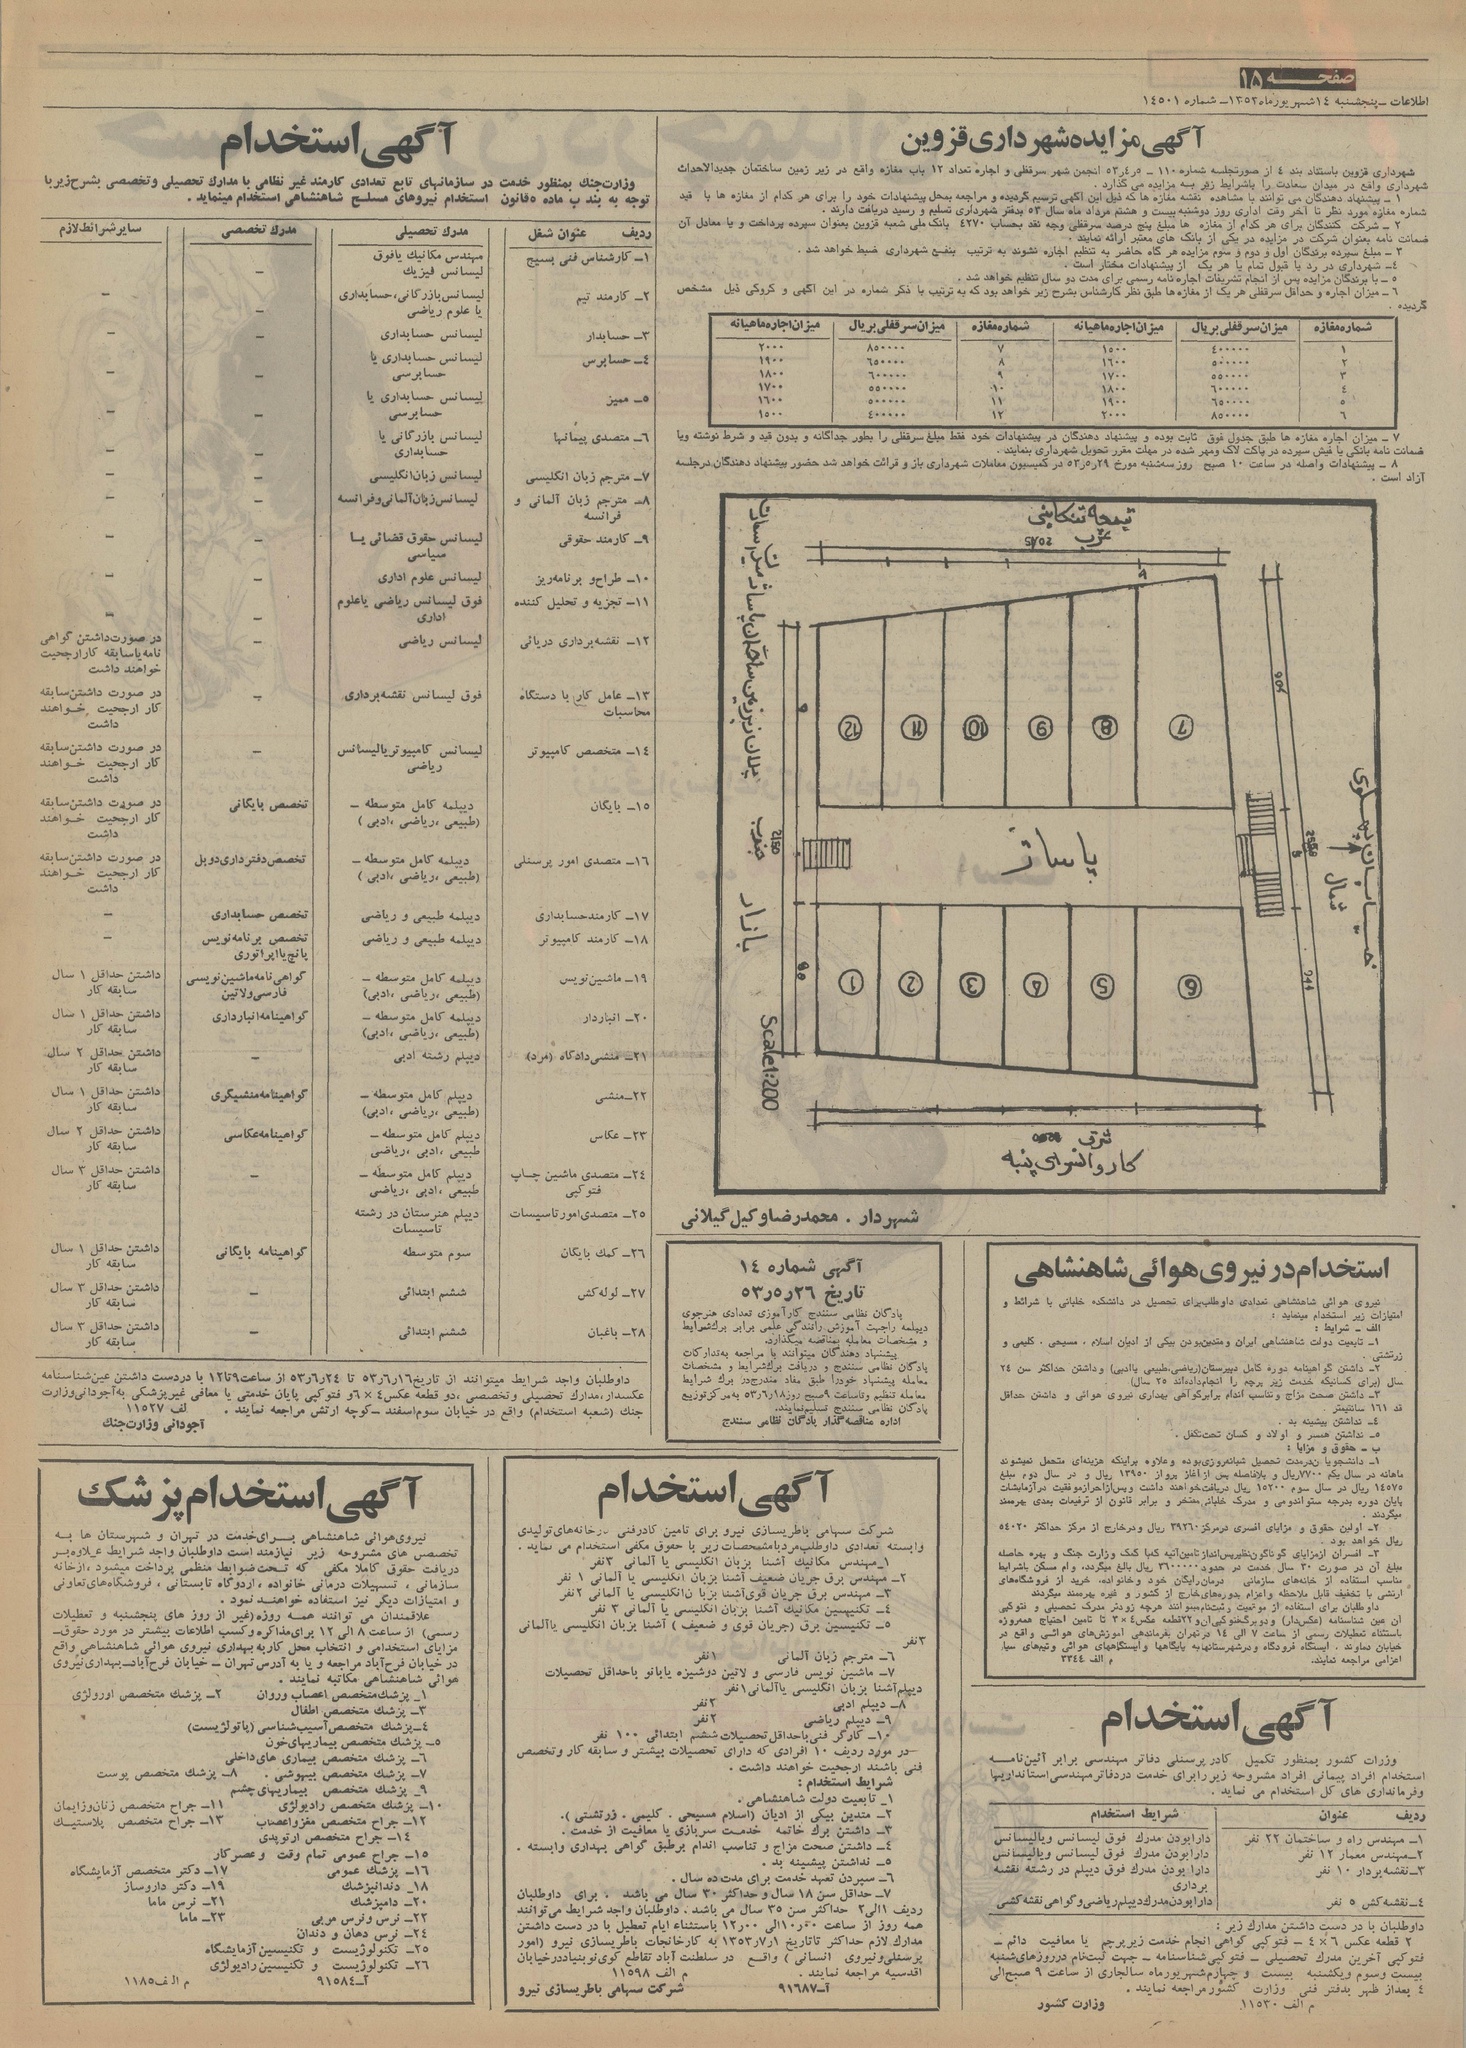 صفحه ۱۵
اطلاعات ـ پنجشنبه ۱۴ شهریورماه ۱۳۵۳ـ شماره ۱۴۵۰۱
آگهی مزایده شهرداری قزوین
شهرداری قزوین باستناد بند ۴ از صورتجلسه شماره ۱۱۰ ـ ۵ر۴ر۵۳ انجمن شهر سرقفلی و اجاره تعداد ۱۲ باب مغازه واقع در زیر زمین ساختمان جدیدالاحداث
شهرداری واقع در میدان سعادت را باشرایط زیر به مزایده می گذارد .
۱ ـ پیشنهاد دهندگان می توانند با مشاهده نقشه مغازه ها که ذیل این آگهی ترسیم گردیده و مراجعه بمحل پیشنهادات خود را برای هر کدام از مغازه ها با قید
شماره مغازه مورد نظر تا آخر وقت اداری روز دوشنبه بیست و هشتم مرداد ماه سال ۵۳ بدفتر شهرداری تسلیم و رسید دریافت دارند .
۲ ـ شرکت کنندگان برای هر کدام از مغازه ها مبلغ پنج درصد سرقفلی وجه نقد بحساب ۴۲۷۰ بانک ملی شعبه قزوین بعنوان سپرده پرداخت و یا معادل آن
ضمانت نامه بعنوان شرکت در مزایده در یکی از بانک های معتبر ارائه نمایند .
۳ ـ مبلغ سپرده برندگان اول و دوم و سوم مزایده هر گاه حاضر به تنظیم اجاره نشوند به ترتیب بنفع شهرداری ضبط خواهد شد .
۴ـ شهرداری در رد یا قبول تمام یا هر یک از پیشنهادات مختار است .
۵ ـ با برندگان مزایده پس از انجام تشریفات اجاره نامه رسمی برای مدت دو سال تنظیم خواهد شد .
۶ ـ میزان اجاره و حداقل سرقفلی هر یک از مغازه‌ها طبق نظر کارشناس بشرح زیر خواهد بود که به ترتیب با ذکر شماره در این آگهی و کروکی ذیل مشخص
گردیده .
شماره مغازه میزان سرقفلی بریال میزان اجاره ماهیانه شماره مغازه میزان سرقفلی بریال میزان اجاره ماهیانه
۱ ۴۰۰۰۰۰ ۱۵۰۰ ۷ ۸۵۰۰۰۰ ۲۰۰۰
۲ ۵۰۰۰۰۰ ۱۶۰۰ ۸ ۶۵۰۰۰۰ ۱۹۰۰
۳ ۵۵۰۰۰۰ ۱۷۰۰ ۹ ۶۰۰۰۰۰ ۱۸۰۰
۴ ۶۰۰۰۰۰ ۱۸۰۰ ۱۰ ۵۵۰۰۰۰ ۱۷۰۰
۵ ۶۵۰۰۰۰ ۱۹۰۰ ۱۱ ۵۰۰۰۰۰ ۱۶۰۰
۶ ۸۵۰۰۰۰ ۲۰۰۰ ۱۲ ۴۰۰۰۰۰ ۱۵۰۰
۷ ـ میزان اجاره مغازه ها طبق جدول فوق ثابت بوده و پیشنهاد دهندگان در پیشنهادات خود فقط مبلغ سرقفلی را بطور جداگانه و بدون قید و شرط نوشته ویا
ضمانت نامه بانکی یا فیش سپرده در پاکت لاک ومهر شده در مهلت مقرر تحویل شهرداری بنمایند .
۸ ـ پیشنهادات واصله در ساعت ۱۰ صبح روز سه‌شنبه مورخ ۲۹ر۵ر۵۳ در کمیسیون معاملات شهرداری باز و قرائت خواهد شد حضور پیشنهاد دهندگان در جلسه
آزاد است .
تیمچه تنکابنی
غرب
پاساژ
خیابان پهلوی
شمال
جنوب
بازار
Scale 1:200
شرق
کاروانسرای پنبه
۷ ۸ ۹ ۱۰ ۱۱ ۱۲
۱ ۲ ۳ ۴ ۵ ۶
شهردار . محمدرضا وکیل گیلانی
آگهی استخدام
وزارت‌جنگ بمنظور خدمت در سازمانهای تابع تعدادی کارمند غیر نظامی با مدارک تحصیلی وتخصصی بشرح‌زیربا
توجه به بند ب ماده ۵قانون استخدام نیروهای مسلح شاهنشاهی استخدام مینماید .
ردیف عنوان شغل مدرک تحصیلی مدرک تخصصی سایر شرائط لازم
۱ـ کارشناس فنی بسیج مهندس مکانیک یافوق
لیسانس فیزیک ـ
۲ـ کارمند تیم لیسانس بازرگانی،حسابداری ـ
یا علوم ریاضی ـ
۳ـ حسابدار لیسانس حسابداری ـ ـ
۴ـ حسابرس لیسانس حسابداری یا
حسابرسی ـ ـ
۵ـ ممیز لیسانس حسابداری یا
حسابرسی ـ ـ
۶ـ متصدی پیمانها لیسانس بازرگانی یا
حسابداری ـ ـ
۷ـ مترجم زبان انگلیسی لیسانس زبان‌انگلیسی ـ ـ
۸ـ مترجم زبان آلمانی و لیسانس زبان‌آلمانی‌وفرانسه ـ ـ
فرانسه
۹ـ کارمند حقوقی لیسانس حقوق قضائی یا ـ ـ
سیاسی
۱۰ـ طراح‌و برنامه‌ریز لیسانس علوم اداری ـ ـ
۱۱ـ تجزیه و تحلیل کننده فوق لیسانس ریاضی یاعلوم
اداری ـ ـ
۱۲ـ نقشه‌برداری دریائی لیسانس ریاضی ـ در صورت‌داشتن گواهی
نامه‌یاسابقه کارارجحیت
خواهند داشت
۱۳ـ عامل کار با دستگاه فوق لیسانس نقشه‌برداری ـ در صورت داشتن‌سابقه
محاسبات کار ارجحیت خواهند
داشت
۱۴ـ متخصص کامپیوتر لیسانس کامپیوتریالیسانس ـ در صورت داشتن‌سابقه
ریاضی کار ارجحیت خواهند
داشت
۱۵ـ بایگان دیپلمه کامل متوسطه ـ تخصص بایگانی در صورت داشتن‌سابقه
(طبیعی ،ریاضی ،ادبی ) کار ارجحیت خواهند
داشت
۱۶ـ متصدی امور پرسنلی دیپلمه کامل متوسطه ـ تخصص‌دفترداری‌دوبل در صورت داشتن‌سابقه
(طبیعی ،ریاضی ،ادبی ) کار ارجحیت خواهند
داشت
۱۷ـ کارمندحسابداری دیپلمه طبیعی و ریاضی تخصص حسابداری ـ
۱۸ـ کارمند کامپیوتر دیپلمه طبیعی و ریاضی تخصص برنامه‌نویس ـ
پانچ‌یااپراتوری
۱۹ـ ماشین‌نویس دیپلمه کامل متوسطه ـ گواهی‌نامه‌ماشین‌نویسی داشتن حداقل ۱ سال
(طبیعی ،ریاضی ،ادبی) فارسی‌ولاتین سابقه کار
۲۰ـ انباردار دیپلمه کامل متوسطه ـ گواهینامه‌انبارداری داشتن حداقل ۱ سال
(طبیعی ،ریاضی ،ادبی) سابقه کار
۲۱ـ منشی‌دادگاه (مرد) دیپلم رشته ادبی ـ داشتن حداقل ۲ سال
سابقه کار
۲۲ـ‌منشی دیپلم کامل متوسطه ـ گواهینامه‌منشیگری داشتن حداقل ۱ سال
(طبیعی ،ریاضی ،ادبی) سابقه کار
۲۳ـ عکاس دیپلم کامل متوسطه ـ گواهینامه‌عکاسی داشتن حداقل ۲ سال
طبیعی ،ادبی ،ریاضی سابقه کار
۲۴ـ متصدی ماشین چاپ دیپلم کامل متوسطه ـ ـ داشتن حداقل ۳ سال
فتوکپی طبیعی ،ادبی ،ریاضی سابقه کار
۲۵ـ متصدی‌امورتاسیسات دیپلم هنرستان در رشته
تاسیسات
۲۶ـ کمک بایگان سوم متوسطه گواهینامه بایگانی داشتن حداقل ۱ سال
سابقه کار
۲۷ـ لوله‌کش ششم ابتدائی ـ داشتن حداقل ۳ سال
سابقه کار
۲۸ـ باغبان ششم ابتدائی ـ داشتن حداقل ۳ سال
سابقه کار
داوطلبان واجد شرایط میتوانند از تاریخ۱۶ر۶ر۵۳ تا ۲۴ر۶ر۵۳ از ساعت۹تا۱۲ با دردست داشتن عین‌شناسنامه
عکسدار،مدارک تحصیلی وتخصصی ،دو قطعه عکس۴ × ۶و فتوکپی پایان خدمتی یا معافی غیرپزشکی به‌آجودانی‌وزارت
جنگ (شعبه استخدام) واقع در خیابان سوم‌اسفند ـ‌کوچه ارتش مراجعه نمایند . لف ۱۱۵۲۷
آجودانی وزارت‌جنگ
آگهی شماره ۱۴
تاریخ ۲۶ر۵ر۵۳
پادگان نظامی سنندج کارآموزی تعدادی هنرجوی
دیپلمه راجهت آموزش رانندگی علمی برابر برگ‌شرایط
و مشخصات معامله بمناقصه میگذارد.
پیشنهاد دهندگان میتوانند با مراجعه به‌تدارکات
پادگان نظامی سنندج و دریافت برگ‌شرایط و مشخصات
معامله پیشنهاد خودرا طبق مفاد مندرج‌در برگ شرایط
معامله تنظیم وتاساعت ۹صبح روز۱۸ر۶ر۵۳ به‌مرکزتوزیع
پادگان نظامی سنندج تسلیم‌نمایند.
اداره مناقصه‌گذار پادگان نظامی سنندج
استخدام در نیروی هوائی شاهنشاهی
نیروی هوائی شاهنشاهی تعدادی داوطلب‌برای تحصیل در دانشکده خلبانی با شرائط و
امتیازات زیر استخدام مینماید :
الف ـ شرایط :
۱ـ تابعیت دولت شاهنشاهی ایران ومتدین‌بودن بیکی از ادیان اسلام ، مسیحی ، کلیمی و
زرتشتی .
۲ـ داشتن گواهینامه دوره کامل دبیرستان(ریاضی،طبیعی یاادبی) و داشتن حداکثر سن ۲۴
سال (برای کسانیکه خدمت زیر پرچم را انجام‌داده‌اند ۲۵ سال)
۳ـ داشتن صحت مزاج وتناسب اندام برابرگواهی بهداری نیروی هوائی و داشتن حداقل
قد ۱۶۱ سانتیمتر .
۴ـ نداشتن پیشینه بد .
۵ـ نداشتن همسر و اولاد و کسان تحت‌تکفل .
ب ـ حقوق و مزایا :
۱ـ دانشجویان درمدت تحصیل شبانه‌روزی‌بوده وعلاوه براینکه هزینه‌ای متحمل نمیشوند
ماهانه در سال یکم ۷۷۰۰ریال و بلافاصله پس از آغاز پرواز ۱۳۹۵۰ ریال و در سال دوم مبلغ
۱۴۵۷۵ ریال در سال سوم ۱۵۲۰۰ ریال دریافت‌خواهند داشت وپس‌ازاحرازموفقیت درآزمایشات
پایان دوره بدرجه ستواندومی و مدرک خلبانی مفتخر و برابر قانون از ترفیعات بعدی بهره‌مند
میگردند .
۲ـ اولین حقوق و مزایای افسری درمرکز ۳۹۲۶۰ ریال ودرخارج از مرکز حداکثر ۵۴۰۲۰
ریال خواهد بود .
۳ـ افسران ازمزایای گوناگون‌نظیرپس‌اندازتامین‌آتیه کمک وزارت جنگ و بهره حاصله
مبلغ آن در صورت ۳۰ سال خدمت در حدود ۳۶۰۰۰۰۰ ریال بالغ میگردد، وام مسکن باشرایط
مناسب استفاده از خانه‌های سازمانی درمان‌رایگان خود وخانواده، خرید از فروشگاههای
ارتشی با تخفیف قابل ملاحظه واعزام بدوره‌های‌خارج از کشور و غیره بهره‌مند میگردند
داوطلبان برای استفاده از موقعیت ثبت‌نام‌میتوانند هرچه زودتر مدرک تحصیلی و فتوکپی
آن عین شناسنامه (عکس‌دار) و ۲۲قطعه عکس۴×۳ تا تامین احتیاج همه‌روزه
باستثناء تعطیلات رسمی از ساعت ۷ الی ۱۴ در تهران بفرماندهی آموزشهای هوائی واقع در
خیابان دماوند ، ایستگاه فرودگاه و درشهرستانها به پایگاهها وایستگاههای هوائی وتیم‌های سیار
اعزامی مراجعه نمایند. م الف ۳۳۴۴
آگهی استخدام
وزرات کشور بمنظور تکمیل کادر پرسنلی دفاتر مهندسی برابر آئین‌نامه
استخدام افراد پیمانی افراد مشروحه زیر رابرای خدمت دردفاترمهندسی استانداریها
وفرمانداری های کل استخدام می نماید .
ردیف عنوان شرایط استخدام
۱ـ مهندس راه و ساختمان ۲۲ نفر دارابودن مدرک فوق لیسانس ویالیسانس
۲ـ‌مهندس معمار ۱۲ نفر دارابودن مدرک فوق لیسانس ویالیسانس
۳ـ‌نقشه‌بردار ۱۰ نفر دارا بودن مدرک فوق دیپلم در رشته نقشه
برداری
۴ـ‌نقشه‌کش ۵ نفر دارابودن‌مدرک‌دیپلم‌ریاضی‌وگواهی‌نقشه‌کشی
داوطلبان با در دست داشتن مدارک زیر :
۲ قطعه عکس ۶×۴ ـ فتوکپی گواهی انجام خدمت زیرپرچم یا معافیت دائم ـ
فتوکپی آخرین مدرک تحصیلی ـ فتوکپی شناسنامه ـ جهت ثبت‌نام درروزهای‌شنبه
بیست وسوم ویکشنبه بیست و چهارم‌شهریورماه سالجاری از ساعت ۹ صبح‌الی
۴ بعداز ظهر بدفتر فنی وزارت کشورمراجعه نمایند .
م الف ۱۱۵۳۰ وزارت کشور
آگهی استخدام
شرکت سهامی باطریسازی نیرو برای تامین کادرفنی کارخانه‌های‌تولیدی
وابسته تعدادی داوطلب‌مردبامشخصات زیر با حقوق مکفی استخدام می نماید .
۱ـ‌مهندس مکانیک آشنا بزبان انگلیسی یا آلمانی ۳نفر
۲ـ مهندس برق جریان ضعیف آشنا بزبان انگلیسی یا آلمانی ۱ نفر
۳ـ مهندس برق جریان قوی‌آشنا بزبان‌انگلیسی یا آلمانی ۲نفر
۴ـ تکنیسین مکانیک آشنا بزبان انگلیسی یا آلمانی ۳ نفر
۵ـ تکنیسین برق (جریان قوی و ضعیف ) آشنا بزبان انگلیسی یاآلمانی
۳نفر
۶ـ مترجم زبان آلمانی ۱نفر
۷ـ ماشین نویس فارسی و لاتین دوشیزه یابانو باحداقل تحصیلات
دیپلم‌آشنا بزبان انگلیسی یاآلمانی۱نفر
۸ـ دیپلم ادبی ۲نفر
۹ـ دیپلم ریاضی ۲نفر
۱۰ـ کارگر فنی باحداقل‌تحصیلات ششم ابتدائی ۱۰۰ نفر
در مورد ردیف ۱۰ افرادی که دارای تحصیلات بیشتر و سابقه کار وتخصص
فنی باشند ارجحیت خواهند داشت .
شرایط استخدام :
۱ـ تابعیت دولت شاهنشاهی .
۲ـ متدین بیکی از ادیان (اسلام مسیحی . کلیمی . زرتشتی ).
۳ـ داشتن برگ خاتمه خدمت سربازی یا معافیت از خدمت .
۴ـ داشتن صحت مزاج و تناسب اندام برطبق گواهی بهداری وابسته .
۵ـ نداشتن پیشینه بد .
۶ـ سپردن تعهد خدمت برای مدت ده سال .
۷ـ حداقل سن ۱۸ سال و حداکثر ۳۰ سال می باشد . برای داوطلبان
ردیف ۱الی۲ حداکثر سن ۳۵ سال می باشد . داوطلبان واجد شرایط می‌توانند
همه روز از ساعت ۱۰٫۰۰الی ۱۲٫۰۰ باستثناء ایام تعطیل با در دست داشتن
مدارک لازم حداکثر تاتاریخ ۱ر۷ر۱۳۵۳ به کارخانجات باطریسازی نیرو (امور
پرسنلی‌ونیروی انسانی ) واقع در سلطنت آباد تقاطع کوی نوبنیاددرخیابان
اقدسیه مراجعه نمایند . م الف ۱۱۵۹۸
آـ۹۱۶۸۷ شرکت سهامی باطریسازی نیرو
آگهی استخدام پزشک
نیروی‌هوائی شاهنشاهی برای‌خدمت در تهران و شهرستان ها به
تخصص های مشروحه زیر نیازمند است داوطلبان واجد شرایط علاوه‌بر
دریافت حقوق کاملا مکفی که تحت‌ضوابط منظمی پرداخت میشود ،ازخانه
سازمانی ، تسهیلات درمانی خانواده ، اردوگاه تابستانی ، فروشگاه‌های‌تعاونی
و امتیازات دیگر نیز استفاده خواهند نمود .
علاقمندان می توانند همه روزه (غیر از روز های پنجشنبه و تعطیلات
رسمی) از ساعت ۸ الی ۱۲ برای‌مذاکره وکسب اطلاعات بیشتر در مورد حقوق‌ـ
مزایای استخدامی و انتخاب محل کاربه‌بهداری نیروی هوائی شاهنشاهی واقع
در خیابان فرح‌آباد مراجعه و یا به آدرس تهران ـ خیابان فرح‌آباد‌ـ‌بهداری نیروی
هوائی شاهنشاهی مکاتبه نمایند .
۱ـ پزشک‌متخصص اعصاب وروان ۲ـ پزشک متخصص اورولژی
۳ـ پزشک متخصص اطفال
۴ـ‌پزشک متخصص آسیب‌شناسی (پاتولژیست)
۵ـ پزشک متخصص بیماریهای‌خون
۶ـ پزشک متخصص بیماری های‌داخلی
۷ـ پزشک متخصص بیهوشی . ۸ـ پزشک متخصص پوست
۹ـ پزشک متخصص بیماریهای چشم
۱۰ـ پزشک متخصص رادیولژی ۱۱ـ جراح متخصص زنان‌وزایمان
۱۲ـ جراح متخصص مغزواعصاب ۱۳ـ جراح متخصص پلاستیک
۱۴ـ جراح متخصص ارتوپدی
۱۵ـ جراح عمومی تمام وقت و عصرکار
۱۶ـ پزشک عمومی ۱۷ـ دکتر متخصص آزمایشگاه
۱۸ـ دندانپزشک ۱۹ـ دکتر داروساز
۲۰ـ دامپزشک ۲۱ـ نرس ماما
۲۲ـ نرس ونرس مربی ۲۳ـ ماما
۲۴ـ نرس دهان و دندان
۲۵ـ تکنولوژیست و تکنیسین آزمایشگاه
۲۶ـ تکنولوژیست و تکنیسین رادیولوژی
آـ۹۱۵۸۴ م الف۱۱۸۵